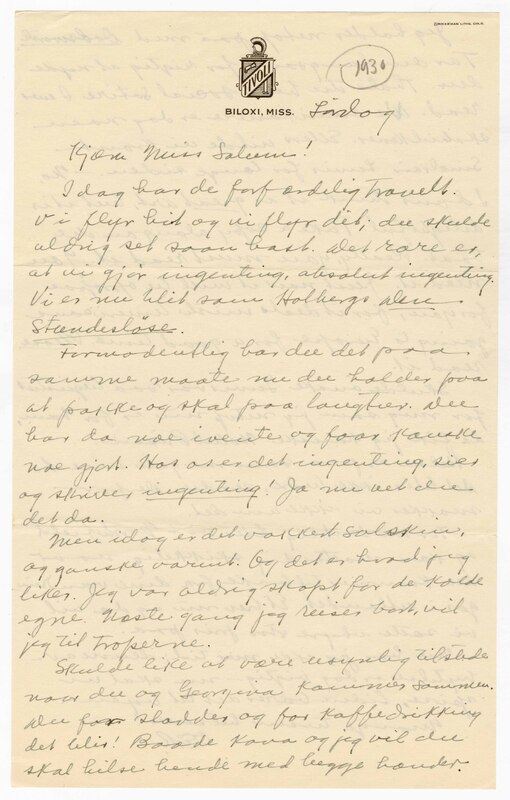 TIVOLI
BILOXI, MISS.
1930
Lördag
Kjære Miss Saleem!
Idag har de forfærdelig travelt.
Vi flyr hit og vi flyr dit; du skulde
aldrig set saan hast. Det rare er,
at vi gjør ingenting, absolut ingenting.
Vi er nu blit som Holbergs den
Stundesløse.
Formodentlig har du det paa
samme maate nu du holder paa
at pakke og skal paa langtur. Du
har da noe ivente og faar kanske
noe gjort. Hos os er det ingenting, sier
og skriver ingenting! Ja nu vet du
det da.
Men idag er det vakkert solskin,
og ganske varmt. Og det er hvad jeg
liker. Jeg var aldrig skapt for de kolde
egne. Næste gang jeg reiser bort, vil
jeg til troperne.
Skulde like at være usynlig tilstede
naar du og Georgina kommer sammen.
Du for sladder og for kaffedrikking
det blir! Baade Kava og jeg vil du
skal hilse hende med begge hænder.